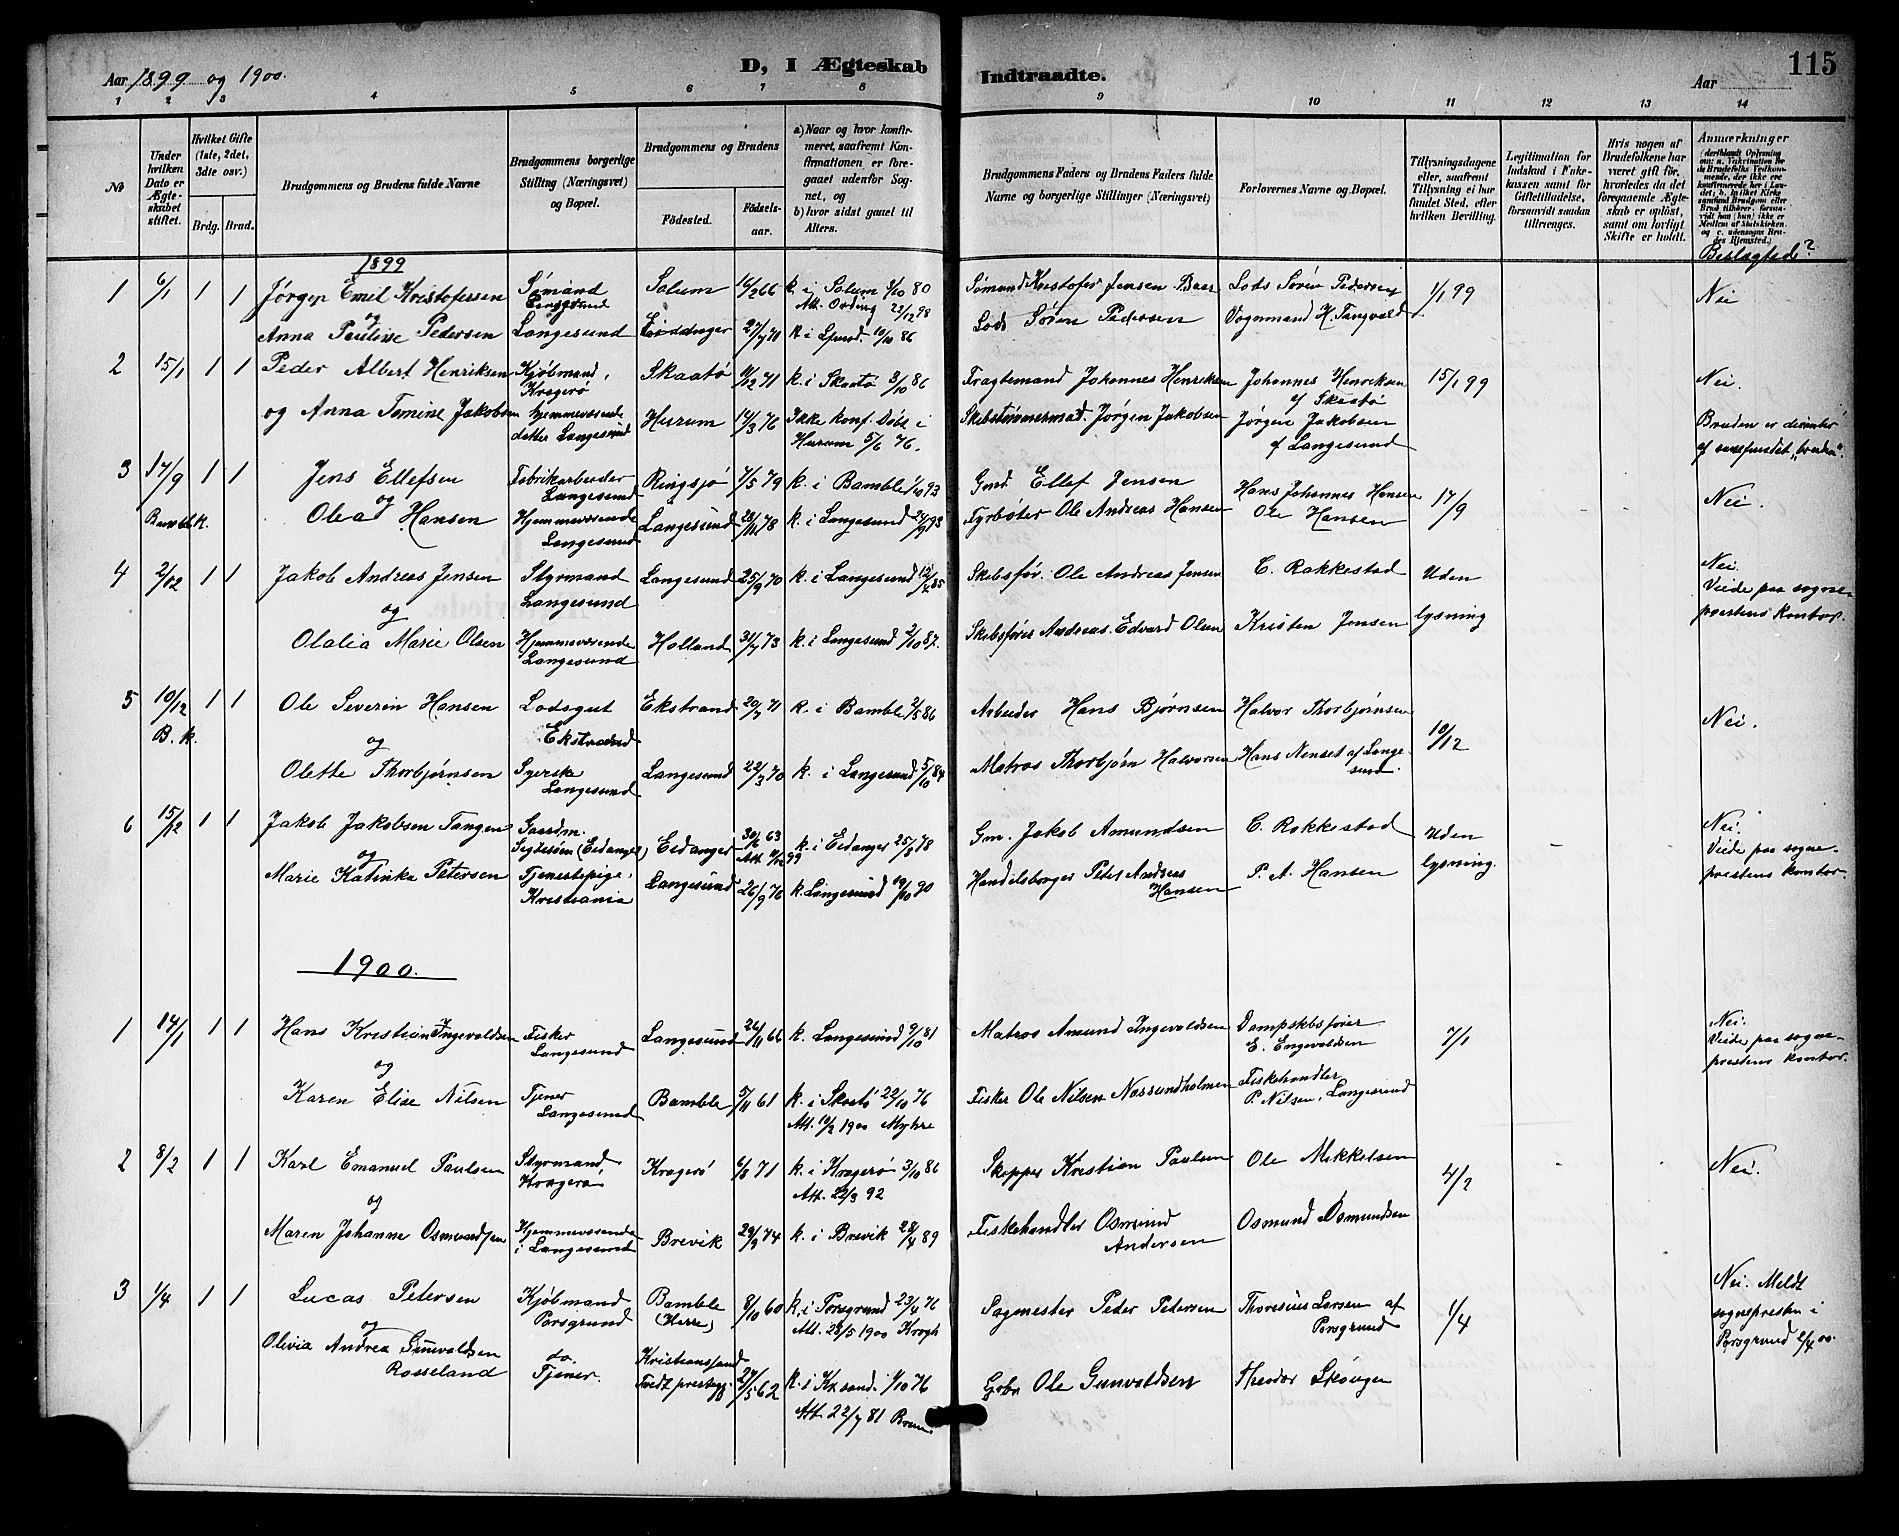 Aar 1899 og 1900.
D, I Ægteskab
Indtraadte.
Aar
115
1 2 3 4 5 6 7 8 9 10 11 12 13 14
No
Under hvilken Dato er Ægteskabet stiftet.
Hvilket Gifte (1ste, 2det, 3die osv.)
Brdg. Brud.
Brudgommens og Brudens fulde Navne
Brudgommens borgerlige Stilling (Næringsvei) og Bopæl.
Brudgommens og Brudens
Födested.
Födselsaar.
a) Naar og hvor konfirmeret, saafremt Konfirmationen er foregaaet udenfor Sognet, og
b) hvor sidst gaaet til Alters.
Brudgommens Faders og Brudens Faders fulde Navne og borgerlige Stillinger (Næringsvei)
Forlovernes Navne og Bopæl.
Tillysningsdagene eller, saafremt Tillysning ei har fundet Sted, efter hvilken Bevilling.
Legitimation for Indskud i Enkekassen samt for Giftetilladelse, forsaavidt saadan tiltrænges.
Hvis nogen af Brudefolkene har været gift för, hvorledes da det foregaaende Ægteskab er oplöst, samt om lovligt Skifte er holdt.
Anmærkninger
Beslægtede?
1899
1 6/1 1 1 Jørgen Emil Kristofersen Sømand Langesund Solum 16/2 66 k. i Solum 3/10 80 Sømand Kristofer Jensen Lods Søren Pedersen 1/1 99 Nei
og
Anna Pauline Pedersen Langesund Eidanger 27/7 71 10/10 86 Lods Søren Pedersen Vognmand H. Tangvald
2 15/1 1 1 Peder Albert Henriksen Kjøbmand, Kragerø Skaatø 11/12 71 k. i Skaatø 3/10 86 Fragtemand Johannes Henriksen Johannes Henriksen af Skaatø 15/1 99 Nei.
og Anna Tomine Jakobsen hjemmeværende datter Langesund Hurum 14/3 76 Ikke konf. Døbt i Hurum 5/6 76. Skibstømmermand Jørgen Jakobsen Jørgen Jakobsen af Langesund Bruden er
3 17/9 1 1 Jens Ellefsen Fabrikarbeider Langesund Ringsjø 7/5 79 k. i Bamble 1/10 93 Gmd Ellef Jensen Hans Johannes Hansen 17/9 Nei.
Bamble k. og
Olea Hansen Hjemmeværende Langesund Langesund 28/12 78 k. i Langesund 24/9 93 Fyrbøter Ole Andreas Hansen Ole Hansen
4 2/12 1 1 Jakob Andreas Jensen Styrmand Langesund Langesund 25/9 70 k. i Langesund 85 Skibsfør. Ole Andreas Jensen C. Rakkestad Uden lysning Nei. Viede paa sogneprestens kontor.
og
Olalia Marie Olsen Hjemmeværende Langesund Holland 31/7 73 k. i Langesund 2/10 87. Skibsfører Andreas Edvard Olsen Kristen Jensen
5 10/12 1 1 Ole Severin Hansen Lodsgut Ekstrand Ekstrand 20/7 71 k. i Bamble 2/5 86 Arbeider Hans Bjørnsen Halvor Thorbjørnsen 10/12 Nei.
B. k. og
Olette Thorbjørnsen Syerske Langesund Langesund 22/3 70 k. i Langesund 5/10 84 Matros Thorbjørn Halvorsen Hans Nenset af Langesund.
6 15/12 1 1 Jakob Jakobsen Tangen Gaardm. (Eidanger) Eidanger 30/6 63 k. i Eidanger 25/8 78 Gm. Jakob Amundsen C. Rakkestad Uden lysning. Nei. Viede paa sogneprestens kontor.
og
Marie Katinka Petersen Tjenestepige, Kristiania Langesund 26/9 76 k. Langesund 19/10 90 Handelsborger Peter Andreas Hansen P. A. Hansen
1900.
1 14/1 1 1 Hans Kristian Ingevaldsen Fisker Langesund Langesund 26/11 66 k. Langesund 9/10 81 Matros Amund Ingevaldsen Dampskbsfører E. Engevaldsen 7/1 Nei. Viede paa sogneprestens kontor.
og
Karen Elise Nilsen Tjener Langesund Bamble 5/11 61 k. i Skaatø 22/10 76 Att. 10/2 1900 Myhre Fisker Ole Nilsen Nossundholmen Fiskehandler P. Nilsen, Langesund
2 8/2 1 1 Karl Emanuel Paulsen Styrmand Kragerø Kragerø 6/8 71 k. i Kragerø 3/10 86 Att. 22/3 92 Skipper Kristian Paulsen Ole Mikkelsen 4/2 Nei.
og
Maren Johanne Osmundsen Hjemmeværende i Langesund Brevik 29/9 74 k. i Brevik 28/4 89 Fiskehandler Osmund Andersen Osmund Osmundsen
3 1/4 1 1 Lucas Petersen Kjøbmand Porsgrund Bamble (Herre) 8/10 60 k. i Porsgrund 23/4 76 Att. 28/5 1900 Krogh Sagmester Peder Petersen Thoresius Larsen af Porsgrund 1/4 Nei. Meldt sognepresten i Porsgrund 2/4 00.
og
Olivia Andrea Gunvaldsen Rosseland do. Tjener. Kristianssand Tvedt prestegj. 27/5 62 k. i Kr.sand. 1/10 76 Att. 22/7 81 Ole Gunvaldsen Theodor